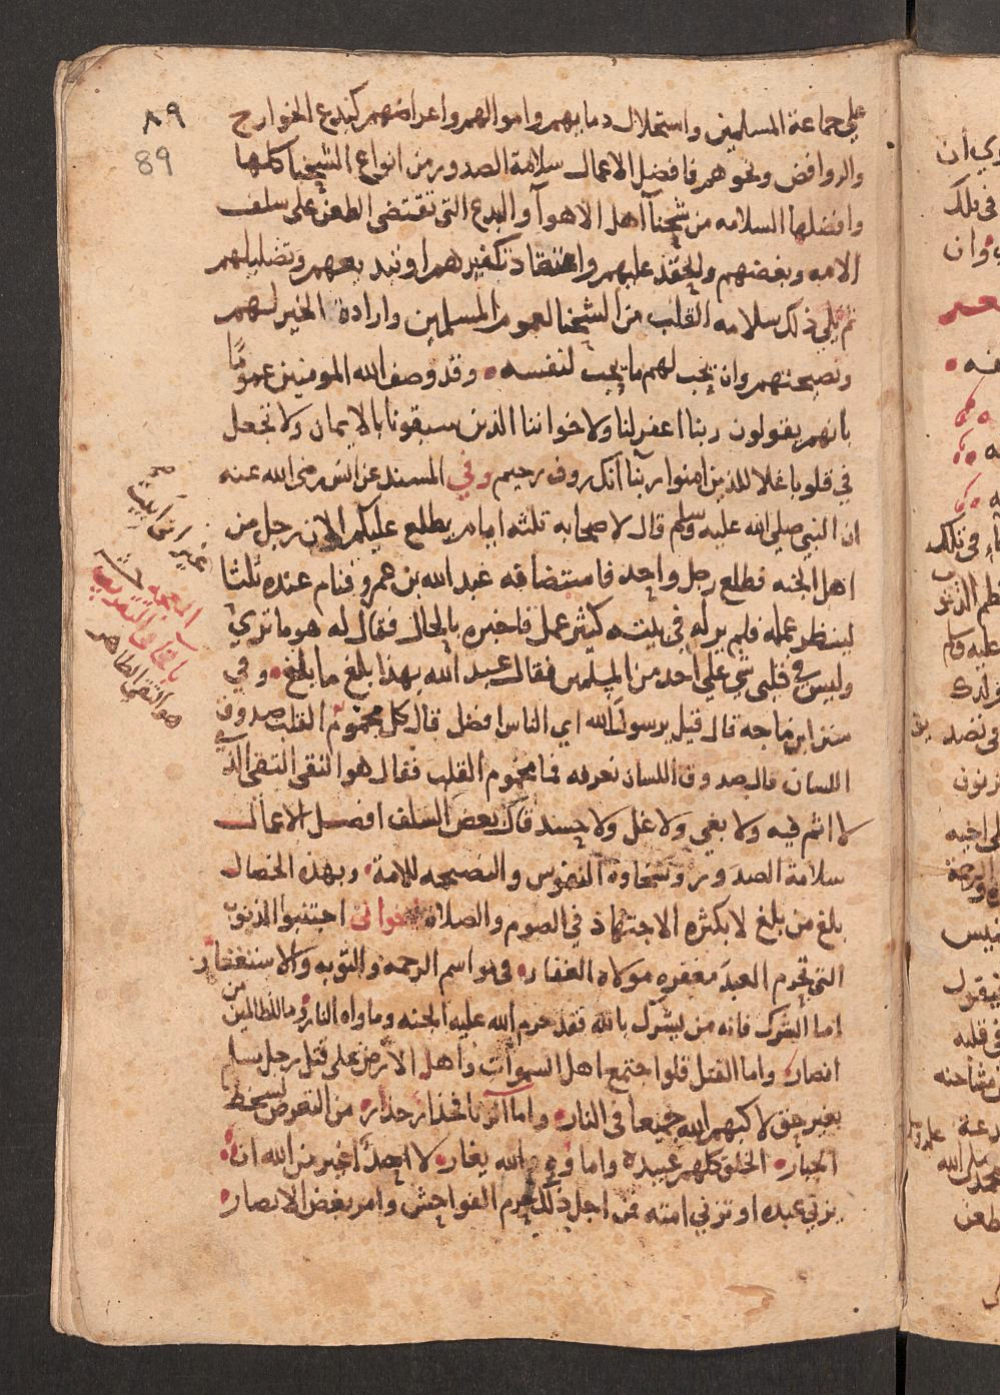 ٨٩
89
على جماعة المسلمين واستحلال دمايهم واموالهم واعراضهم كبدع الخوارج
والروافض ونحوهم فافضل الاعمال سلامة الصدور من انواع الشحنا كلها
وافضلها السلامه من شحنآ اهل الاهوآ والبدع التى تقتضى الطعن على سلف
الامه وبغضهم والحقد عليهم واعتقاد تكفيرهم او تبديعهم وتضليلهم
ثم يلي ذلك سلامه القلب من الشحنا لعموم المسلمين وارادة الخير لهم
ونصيحتهم وان يحب لهم ما يحب لنفسه وقد وصف الله المومنين عمومًا
بانهم يقولون ربنا اغفر لنا ولاخواننا الذين سبقونا بالايمان ولا تجعل
في قلوبنا غلا للذين امنوا ربنآ انك روف رحيم وفي المسند عن انس رضى الله عنه
ان النبي صلى الله عليه وسلم قال لاصحابه ثلثه ايام يطلع عليكم الان رجل من
اهل الجنه فطلع رجل واحد فاستضافه عبد الله بن عمرو فنام عنده ثلثا
لينظر عمله فلم ير له في بيته كثير عمل فاخبره بالحال فقال له هو ما ترى
وليس في قلبى شي على احد من المسلمين فقال عبد الله بهذا بلغ ما بلغ وفي
سنن ابن ماجه قال قيل يرسول الله اي الناس افضل قال كل مخموم القلب صدوق
اللسان قال صدوق اللسان نعرفه فما مخموم القلب فقال هو النقي التقي الذي
لا اثم فيه ولا بغي ولا غل ولا حسد قال بعض السلف افضل الاعمال
سلامة الصدور وسخاوة النفوس والنصيحه للامة وبهذه الخصال
بلغ من بلغ لا بكثره الاجتهاد في الصوم والصلاة اخوانى اجتنبوا الذنوب
التى تحرم العبد مغفره مولاه الغفار فى مواسم الرحمه والتوبه والاستغفار
اما الشرك فانه من يشرك بالله فقد حرم الله عليه الجنه وماواه النار وما للظالمين من
انصار واما القتل فلو اجتمع اهل السموات واهل الارض على قتل رجل مسلم
بغير حق لاكبهم الله جميعا فى النار واما الزنا فحذار حذار من التعرض لسخط
الجبار الخلق كلهم عبيده واماوه والله يغار لا احد اغير من الله ان
يزني عبده او تزني امته فمن اجل ذلك حرم الفواحش وامر بغض الابصار
هو النقي الطاهر